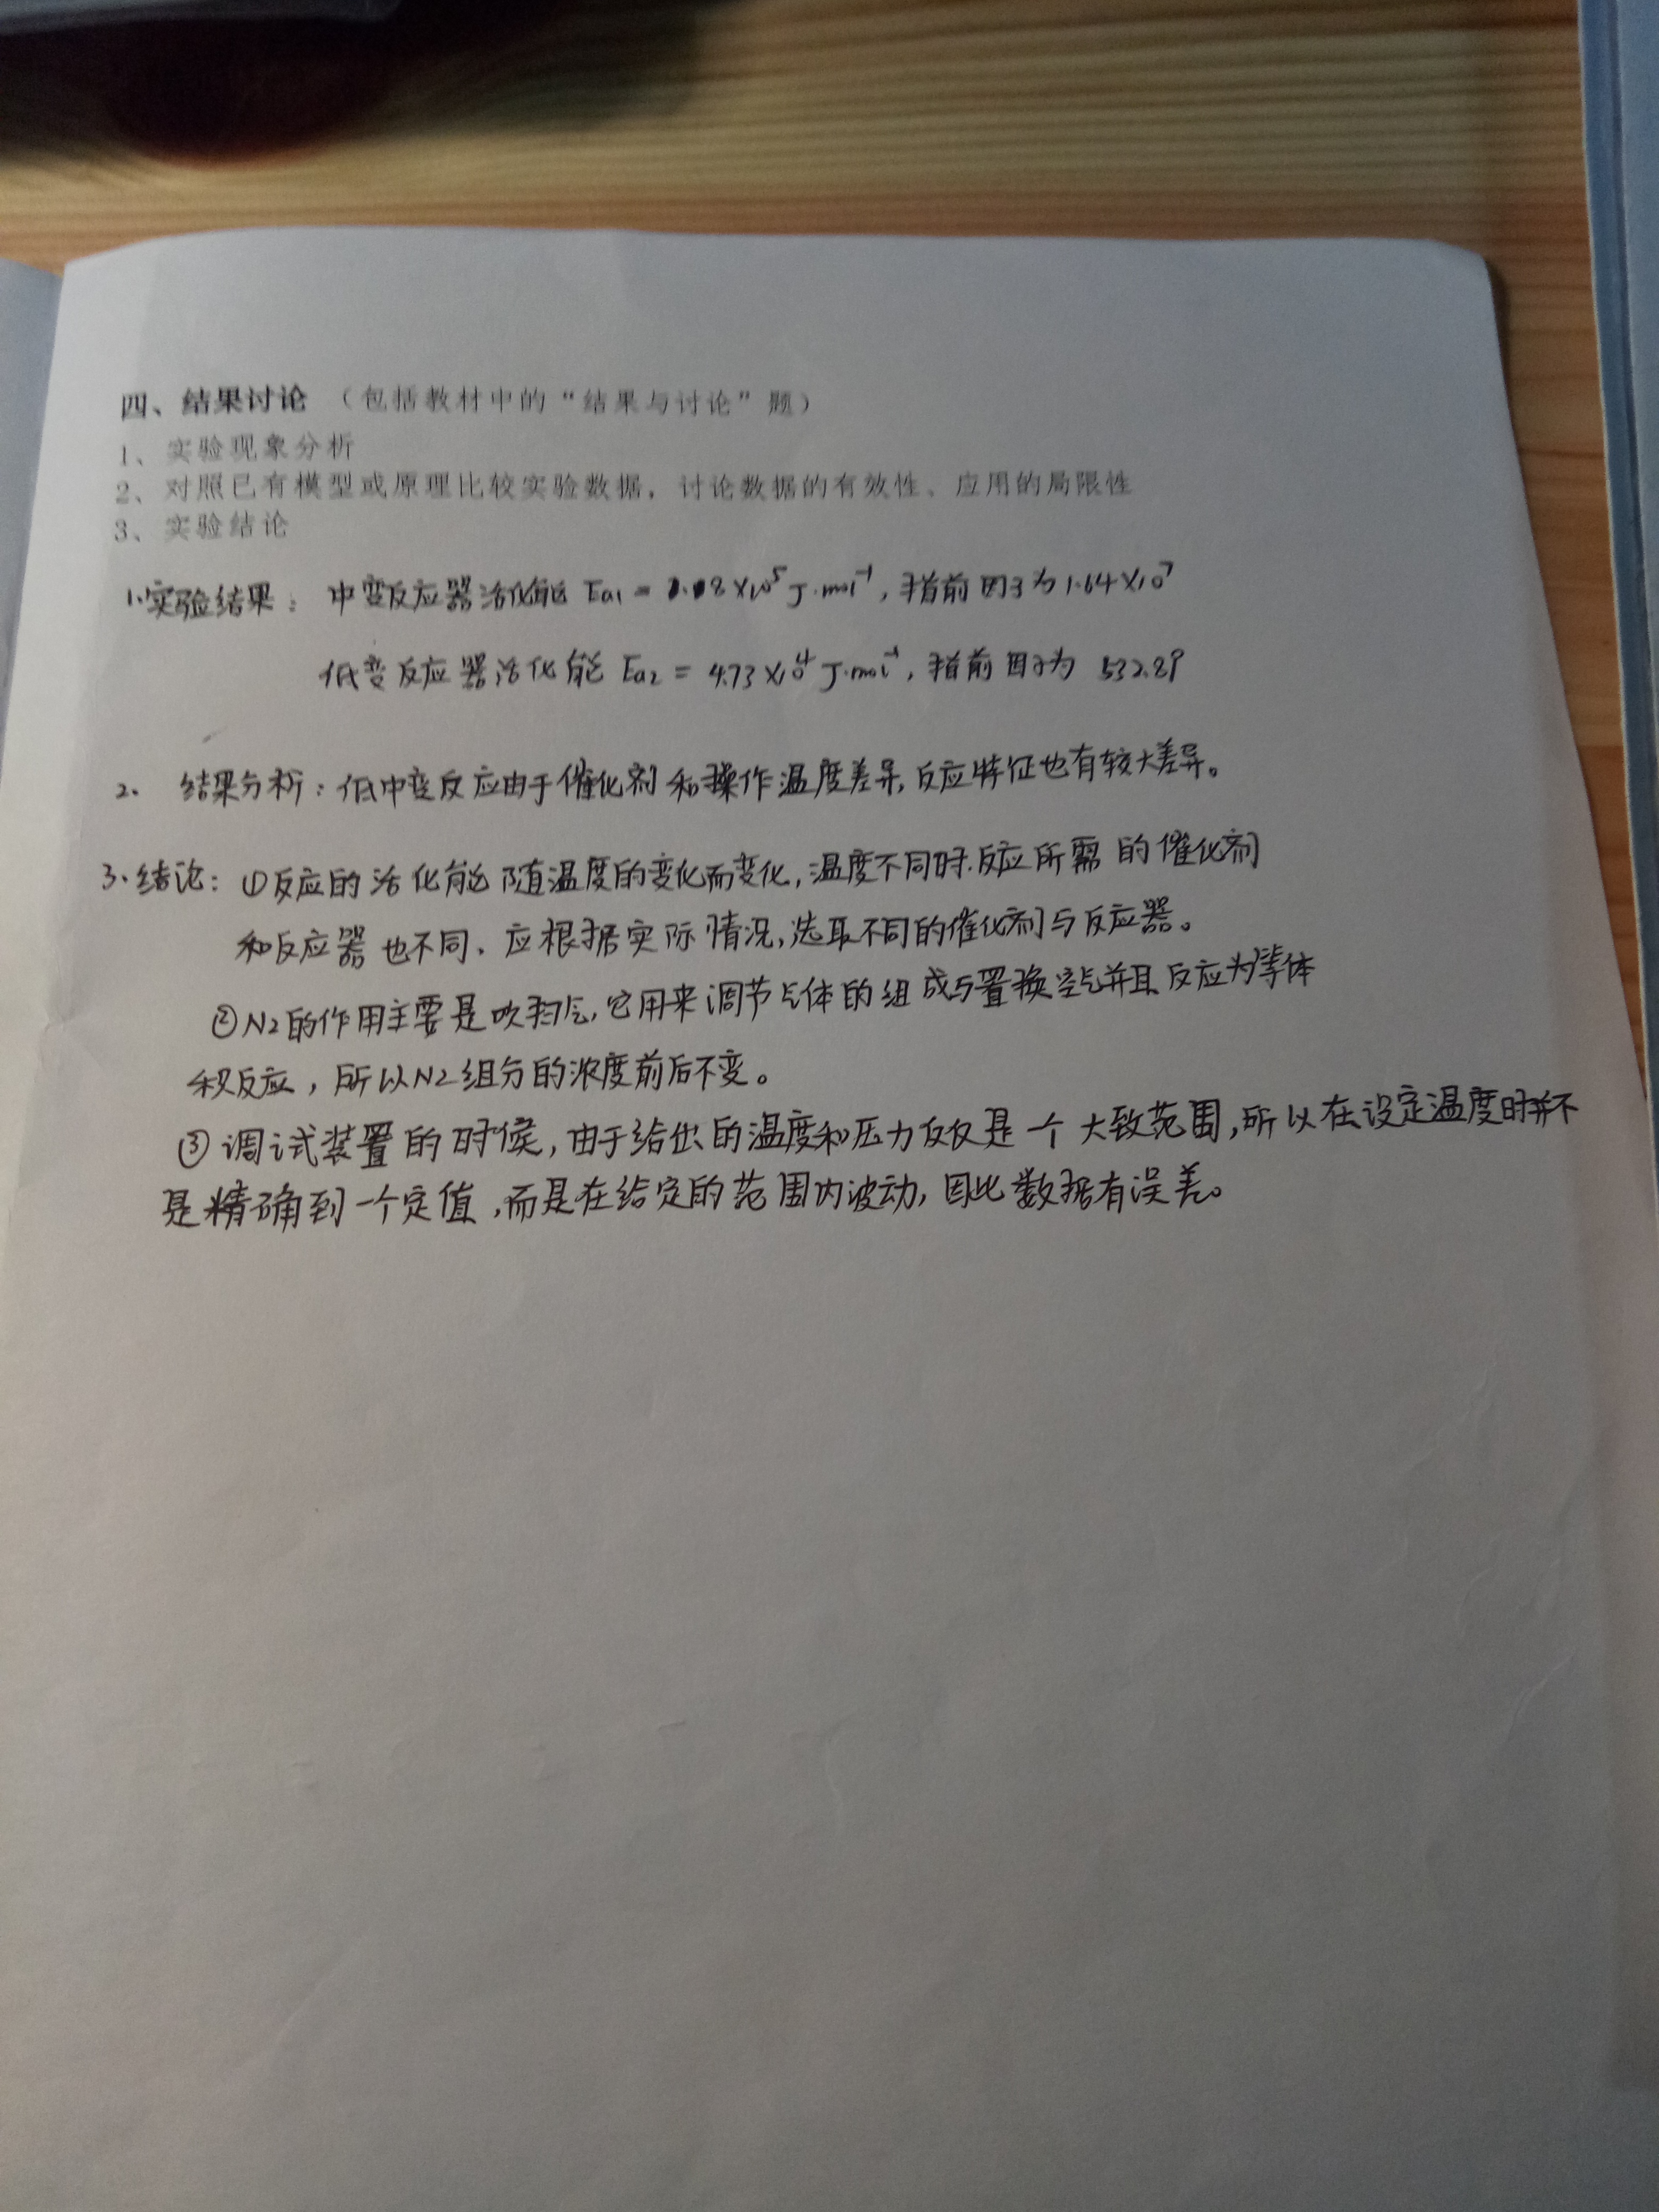 四、结果讨论 （包括教材中的“结果与讨论”题）
1、实验现象分析
2、对照已有模型或原理比较实验数据，讨论数据的有效性、应用的局限性
3、实验结论
1.实验结果： 中变反应器活化能 Ea1 = ×10⁵ J·mol⁻¹, 指前因子为 1.64×10⁷
低变反应器活化能 Ea2 = 4.73×10⁴ J·mol⁻¹, 指前因子为 532.89
2. 结果分析：低中变反应由于催化剂和操作温度差异,反应特征也有较大差异。
3.结论：①反应的活化能随温度的变化而变化,温度不同时.反应所需的催化剂
和反应器也不同、应根据实际情况,选取不同的催化剂与反应器。
②N2的作用主要是吹扫气,它用来调节气体的组成与置换空气并且反应为等体
积反应，所以N2组分的浓度前后不变。
③调试装置的时候,由于给出的温度和压力仅仅是一个大致范围,所以在设定温度时并不
是精确到一个定值,而是在给定的范围内波动,因此数据有误差。